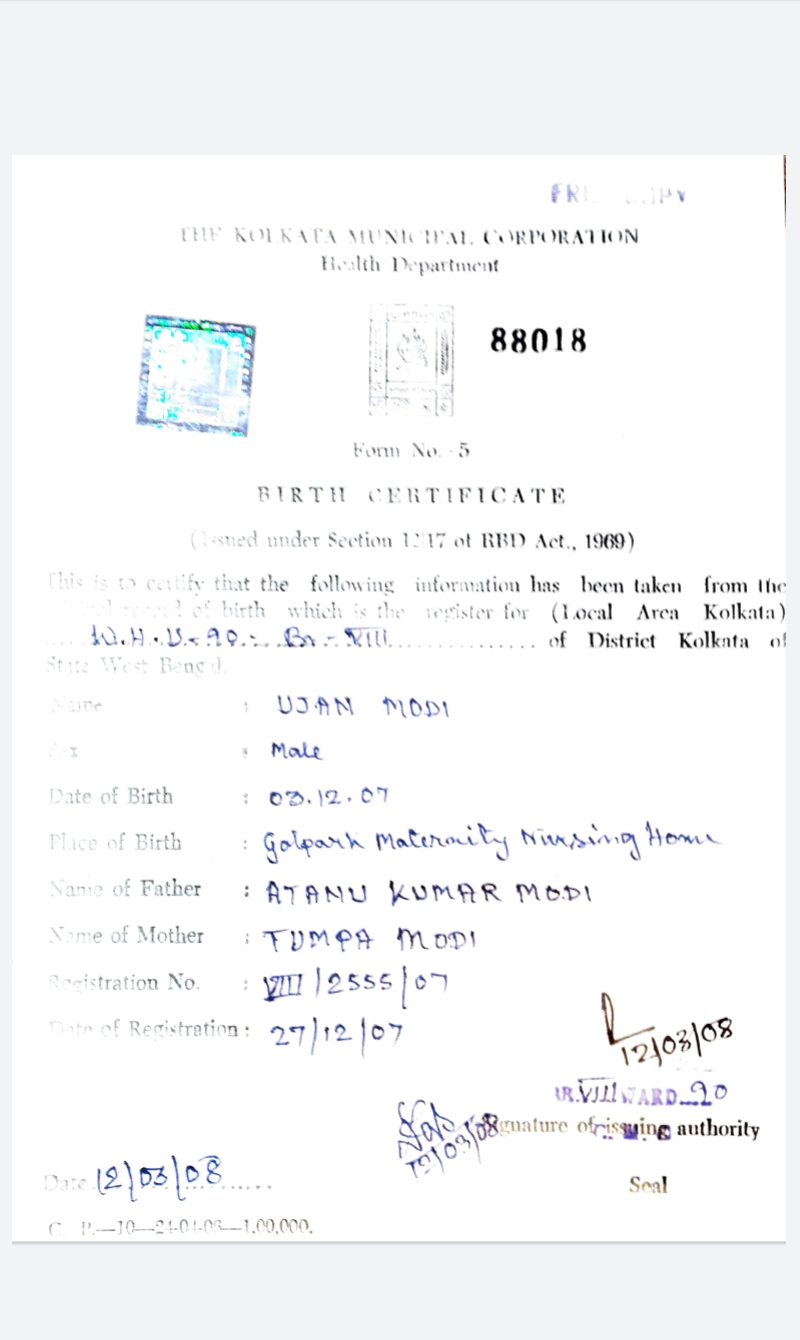 THE KOLKATA MUNICIPAL CORPORATION
Health Department
88018
Form No. - 5
BIRTH CERTIFICATE
(Issued under Section 12/17 of RBD Act., 1969)
This is to certify that the following information has been taken from the
record of birth which is the register for (Local Area Kolkata)
Br - VIII of District Kolkata of
State West Bengal.
Name : UJAN MODI
Sex : Male
Date of Birth : 03.12.07
Place of Birth : Golpark Maternity Nursing Home
Name of Father : ATANU KUMAR MODI
Name of Mother : TUMPA MODI
Registration No. : VIII/2555/07
Date of Registration : 27/12/07
12/03/08
BR.VIII WARD 90
12/03/08
Signature of issuing authority
Date 12/03/08
Seal
C. P.—10—24-04-06—1,00,000.